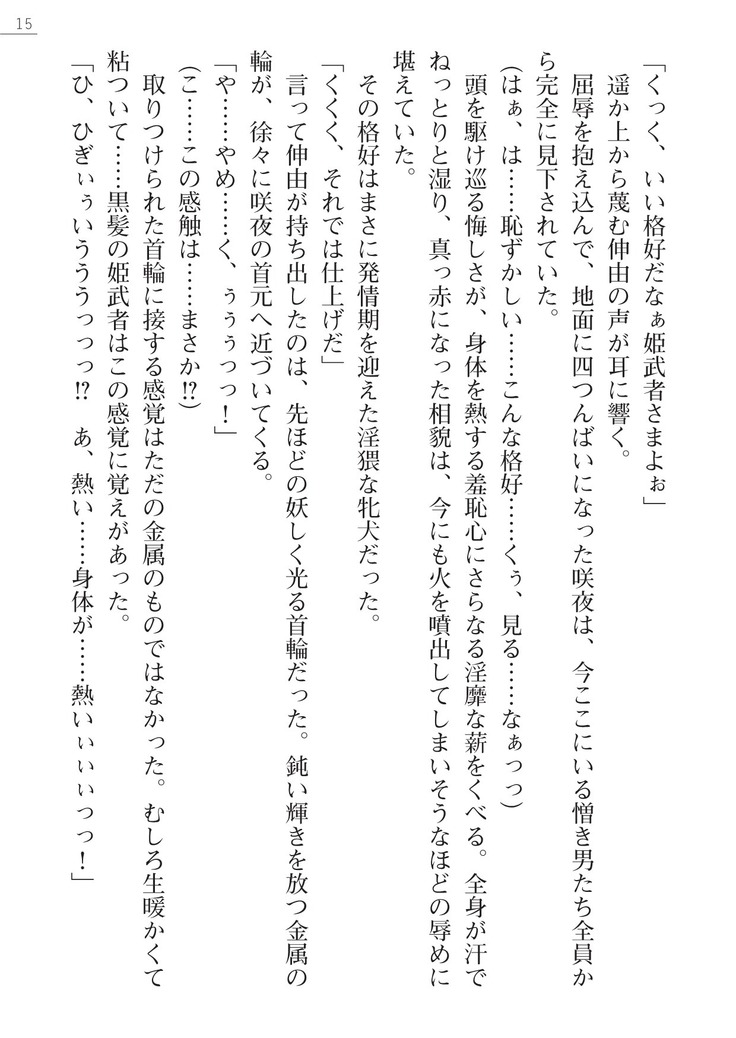 15
「くっく、いい格好だなぁ姫武者さまよぉ」
遥か上から蔑む伸由の声が耳に響く。
屈辱を抱え込んで、地面に四つんばいになった咲夜は、今ここにいる憎き男たち全員か
ら完全に見下されていた。
(はぁ、は……恥ずかしい……こんな格好……くぅ、見る……なぁっっ)
頭を駆け巡る悔しさが、身体を熱する羞恥心にさらなる淫靡な薪をくべる。全身が汗で
ねっとりと湿り、真っ赤になった相貌は、今にも火を噴出してしまいそうなほどの辱めに
堪えていた。
その格好はまさに発情期を迎えた淫猥な牝犬だった。
「くくく、それでは仕上げだ」
言って伸由が持ち出したのは、先ほどの妖しく光る首輪だった。鈍い輝きを放つ金属の
輪が、徐々に咲夜の首元へ近づいてくる。
「や……やめ……く、ぅぅぅっっ！」
(こ……この感触は……まさか⁉)
取りつけられた首輪に接する感覚はただの金属のものではなかった。むしろ生暖かくて
粘ついて……黒髪の姫武者はこの感覚に覚えがあった。
「ひ、ひぎぃぅいうううっっっ⁉　あ、熱い……身体が……熱いぃぃぃっっ！」